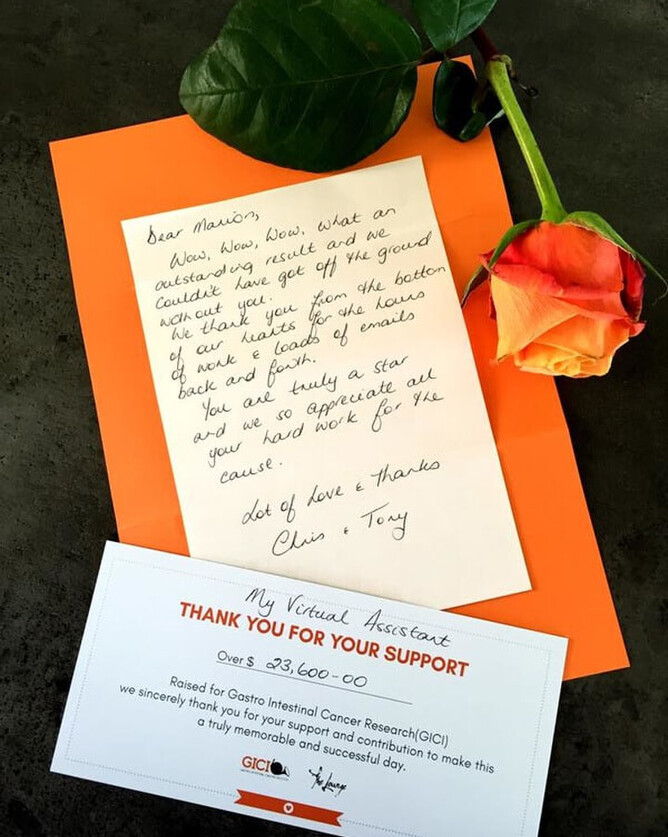 Dear Marion,
Wow, Wow, Wow, what an
outstanding result and we
couldn't have got off the ground
without you.
We thank you from the bottom
of our hearts for the hours
of work & loads of emails
back and forth.
You are truly a star
and we so appreciate all
your hard work for the
cause.
Lot of Love & Thanks
Chris & Tony
My Virtual Assistant
THANK YOU FOR YOUR SUPPORT
Over $ 23,600-00
Raised for Gastro Intestinal Cancer Research(GICI)
we sincerely thank you for your support and contribution to make this
a truly memorable and successful day.
GICI
The Lounge